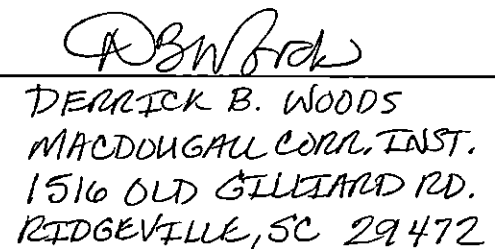 DBWoods
DERRICK B. WOODS
MACDOUGALL CORR. INST.
1516 OLD GILLIARD RD.
RIDGEVILLE, SC 29472